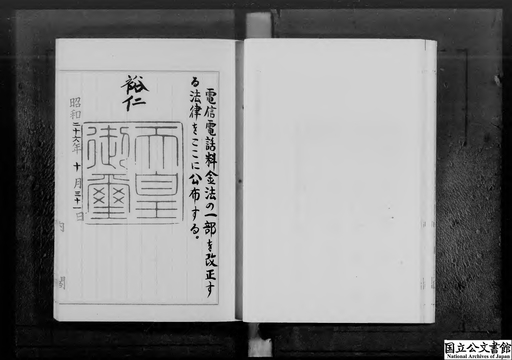 電信電話料金法の一部を改正す
る法律をここに公布する。
裕仁
天皇
御璽
昭和二十六年十月三十一日
内閣
国立公文書館
National Archives of Japan